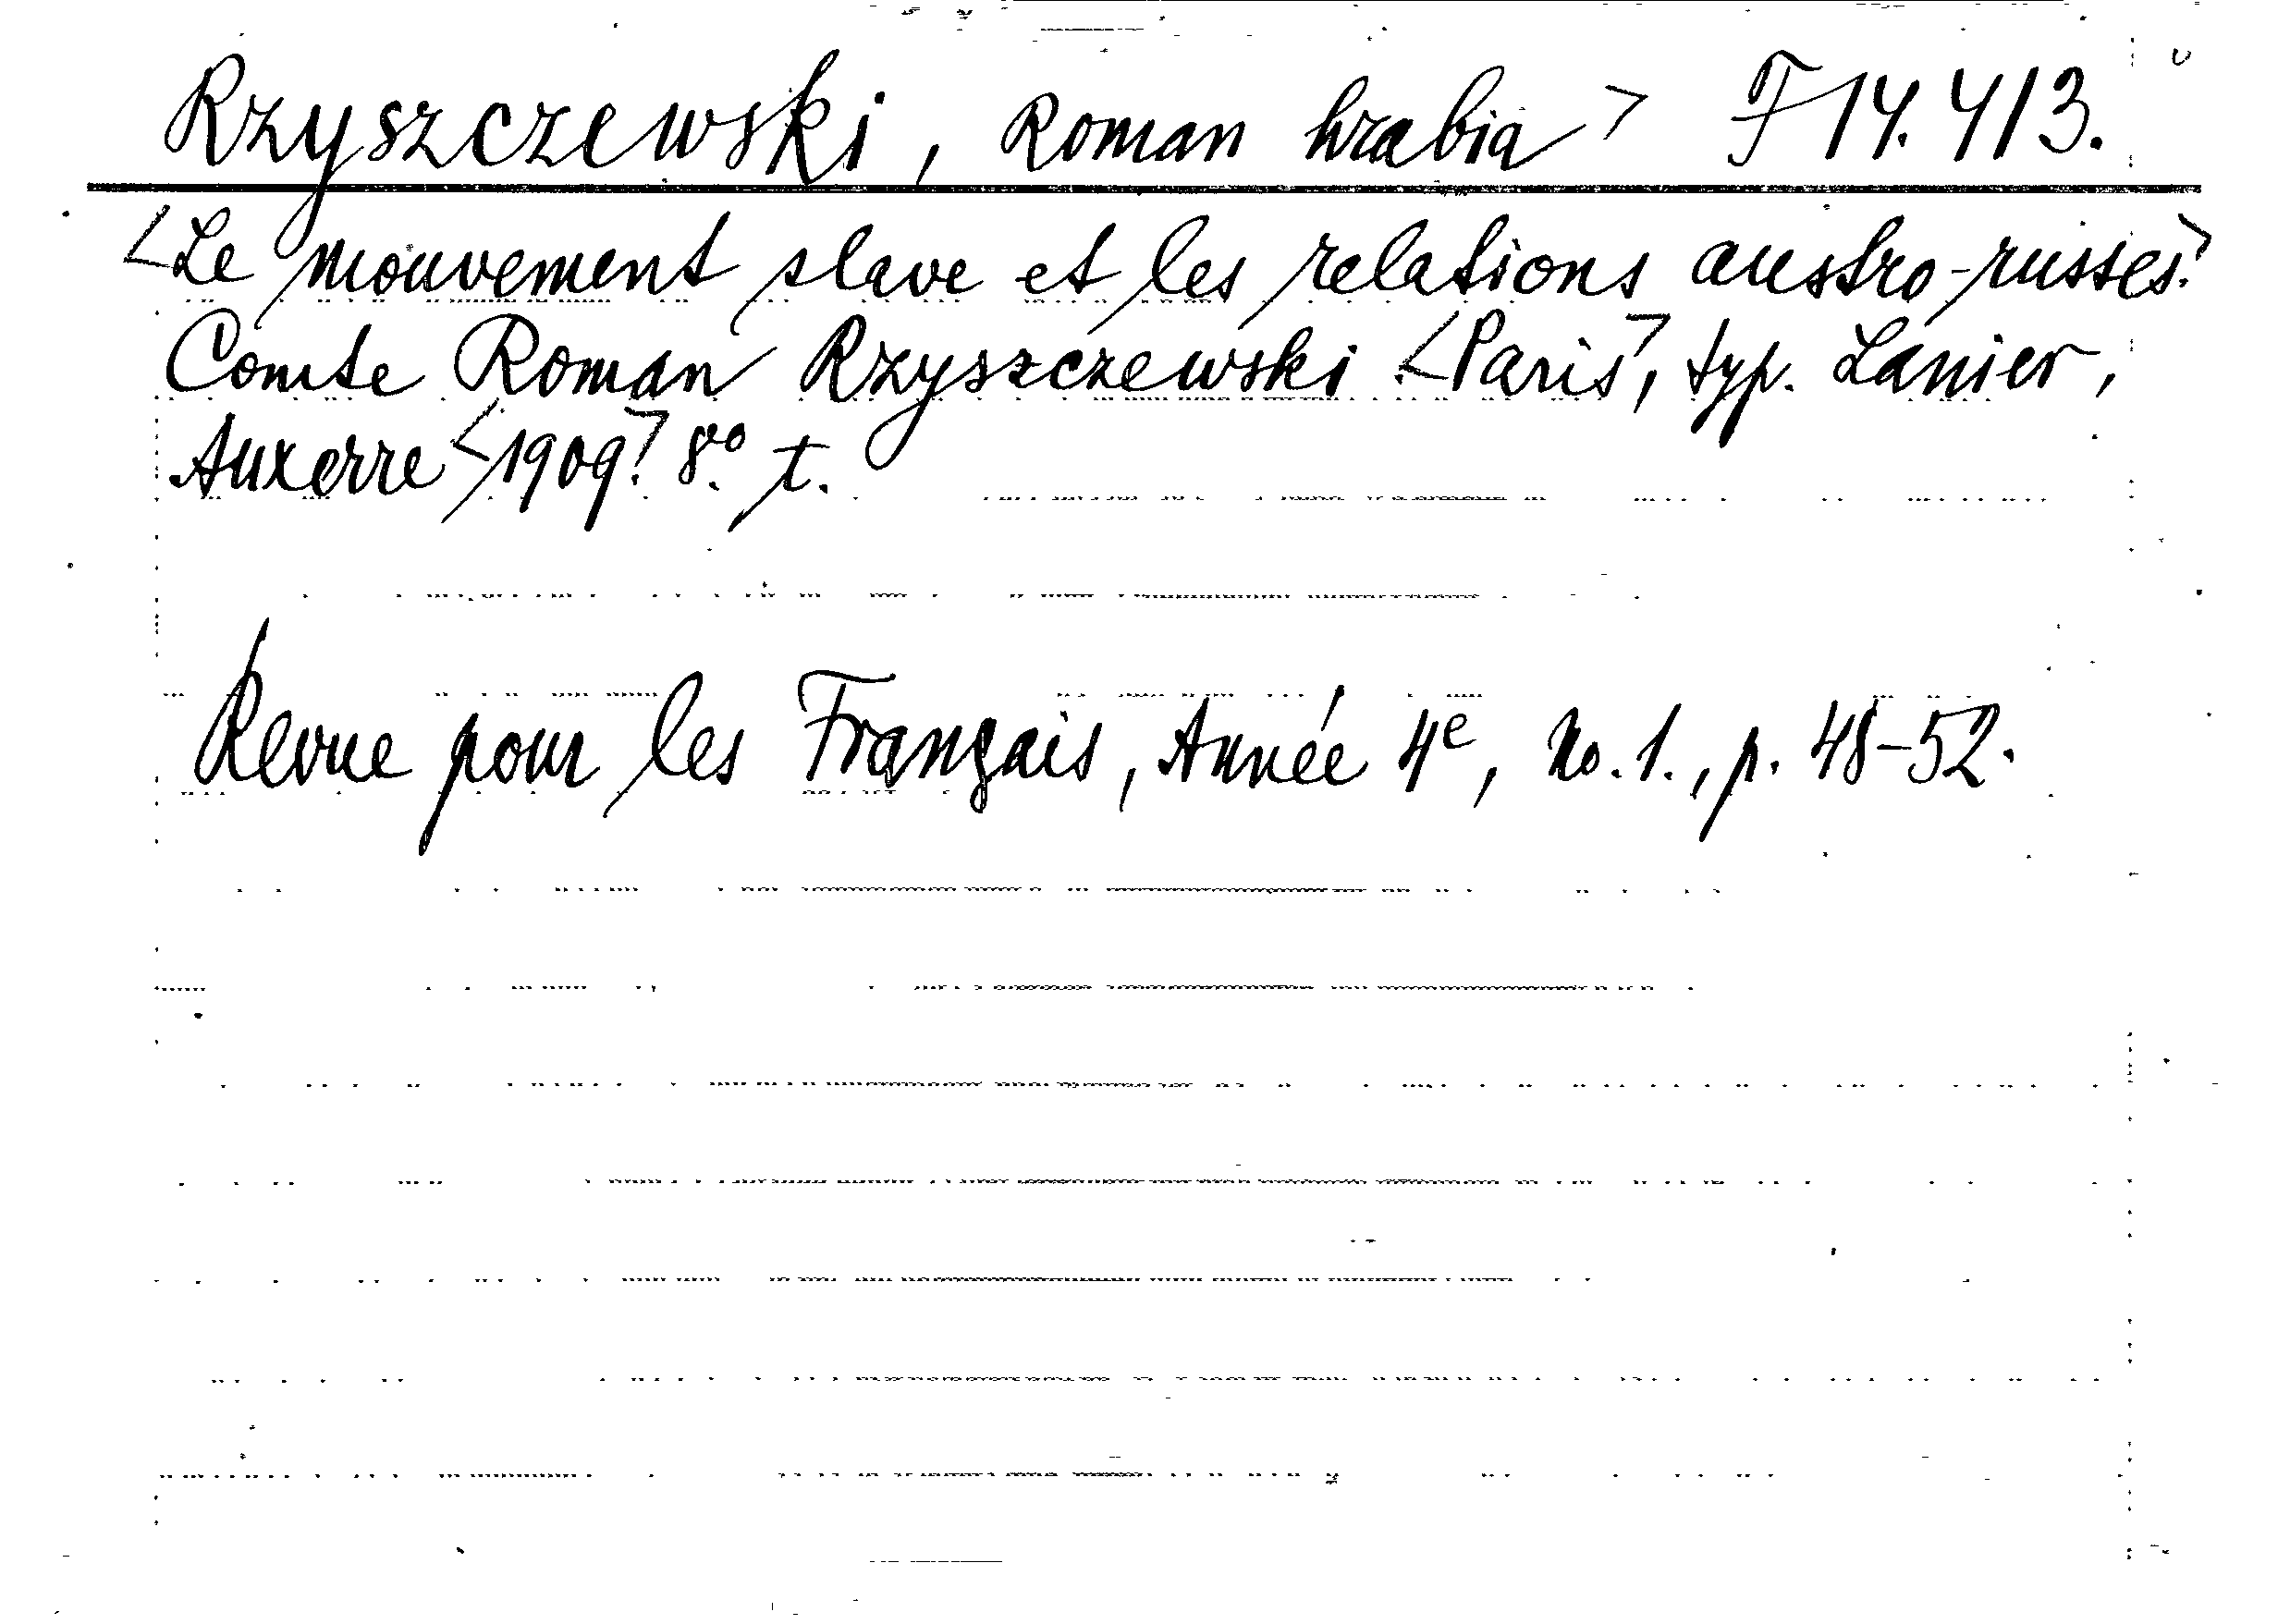 Rzyszczewski, Roman hrabia > F 14.413.
<Le mouvement slave et les relations austro-russes>.
Comte Roman Rzyszczewski <Paris>, typ. Lanier,
Auxerre <1909>. 8º. t.
Revue pour les Français, Année 4e, No. 1., p. 48-52.